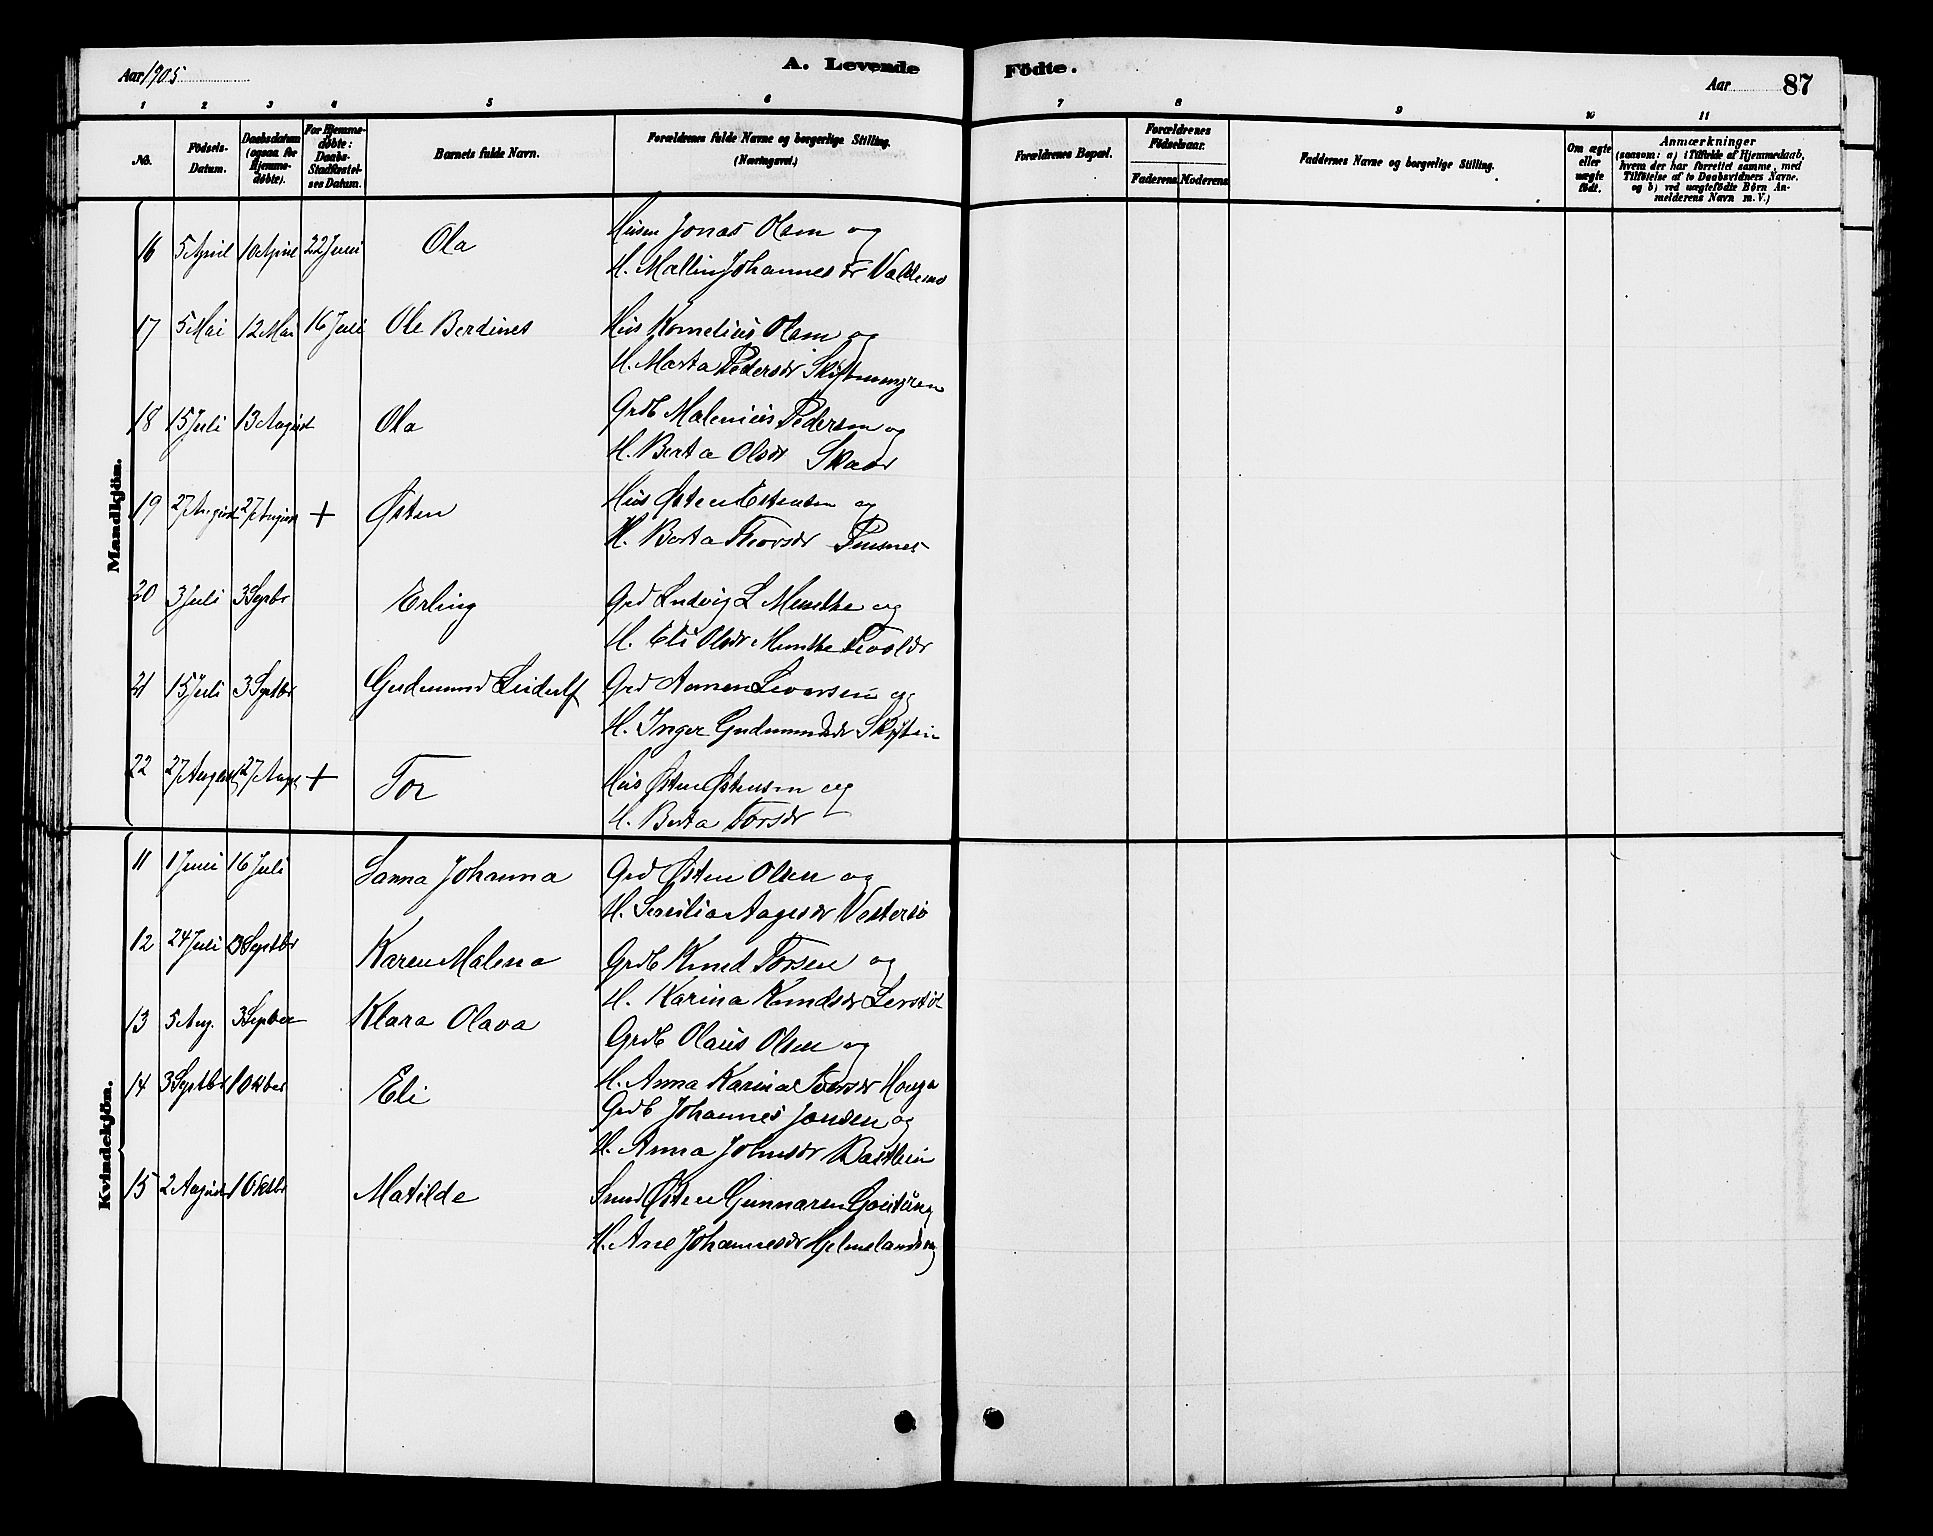 Aar 1905
A. Levende
Födte.
Aar
87
1 2 3 4 5 6 7 8 9 10 11
No.
Födsels-Datum.
Daabsdatum (ogsaa for Hjemme-døbte).
For Hjemme-døbte: Daabs-Stadfæstel-ses Datum.
Barnets fulde Navn.
Forældrenes fulde Navne og borgerlige Stilling. (Næringsvei.)
Forældrenes Bopæl.
Forældrenes Födselsaar.
Faderens. Moderens.
Faddernes Navne og borgerlige Stilling.
Om ægte eller uægte födt.
Anmærkninger
(saasom: a) i Tilfælde af Hjemmedaab,
hvem der har forrettet samme, med
Tilföielse af to Daabsvidners Navne.
og b) ved uægtefödte Börn An-
melderens Navn m. V.)
Mandkjön.
16 5 April 10 April 22 Juni Ola Jonas Olsen og
H. Mallin Johannesdr Valdemo
17 5 Mai 12 Mai 16 Juli Ole Berdines Hus Kornelius Olsen og
H. Marta Pedersdr
18 15 Juli 13 August Ola Grdb Malenius Pedersen og
H. Berta Olsdr Skaar
19 27 August 27 August + Østen Hus Østen Østensen og
H. Berta Thorsdr
20 3 Juli 3 Septbr Erling Grd Ludvig L Munthe og
H. Eli Olsdr Munthe
21 15 Juli 3 Septbr Gudmund Leidulf Grd Iversen og
H. Inger Gudmundsdr
22 27 August 27 Aug + Tor Hus Østen Østensen og
H. Berta Torsdr
Kvindekjön.
11 1 Juni 16 Juli Sanna Johanna Grd Østen Olsen og
H. Aagesdr Vestersø
12 24 Juli 3 Septbr Karen Malena Grdb Knud Torsen og
H. Karina Knudsdr
13 5 Aug. 3 Septber Klara Olava Grdb Olaus Olsen og
H. Anna Karina Hauga
14 3 Septbr 1 Oktber Eli Grdb Johannes Jonsen og
H. Anna Johnsdr
15 2 August 1 Oktbr Matilde Smed Østen Gunnarsen
H. Ane Johannesdr